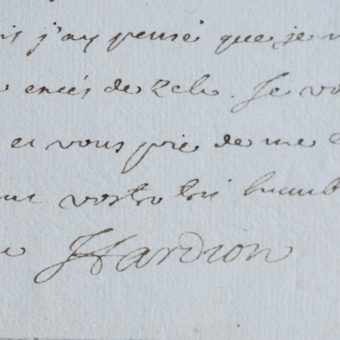 j'ay pensé que je
excés de zele. Je
et vous prie de me
votre très humb
Hardion